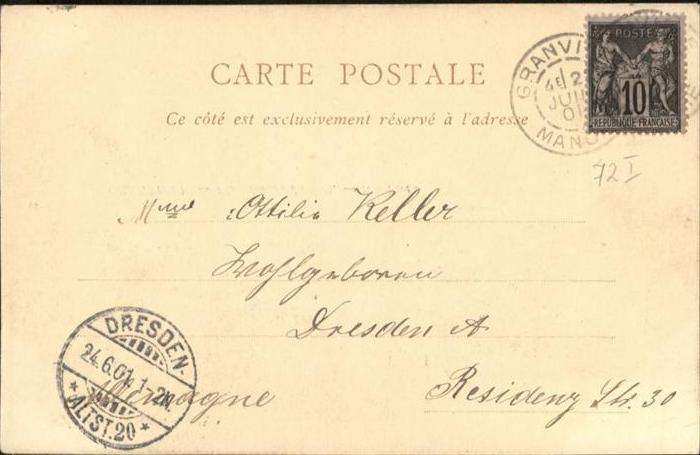 CARTE POSTALE
Ce côté est exclusivement réservé à l'adresse
GRANVI
2
JUI
01
MANC
POSTE
10
REPUBLIQUE FRANÇAISE
72 I
Mme Ottilie Keller
Wohlgeboren
Dresden A
Residenz Str. 30
Allemagne
DRESDEN-
24.6.01. 1-2N.
* ALTST.20 *